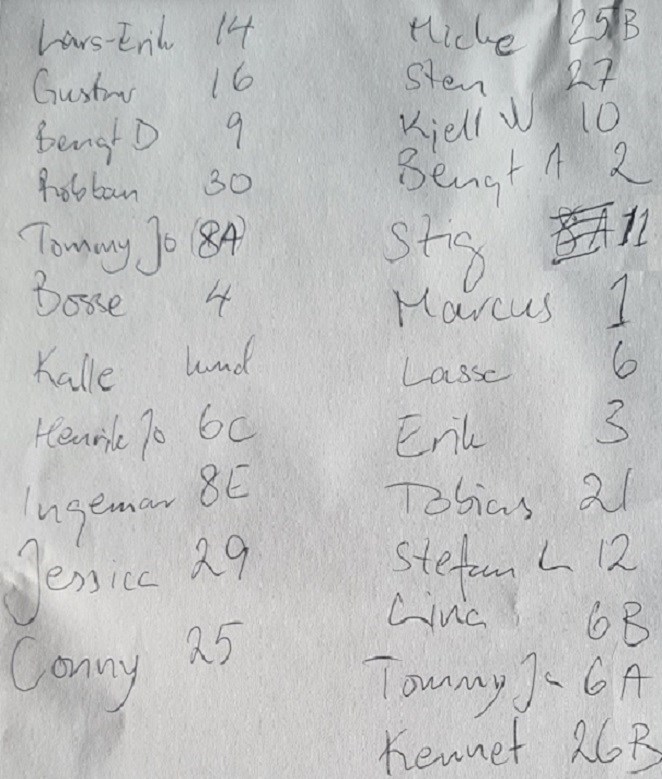 Lars-Erik 14
Gustav 16
Bengt D 9
Robban 30
Tommy Jo (8A)
Bosse 4
Kalle hund
Henrik Jo 6C
Ingemar 8E
Jessica 29
Conny 25
Micke 25B
Sten 27
Kjell W 10
Bengt A 2
Stig 8A 11
Marcus 1
Lasse 6
Erik 3
Tobias 21
Stefan L 12
Lina 6B
Tommy Ja 6A
Kennet 26B